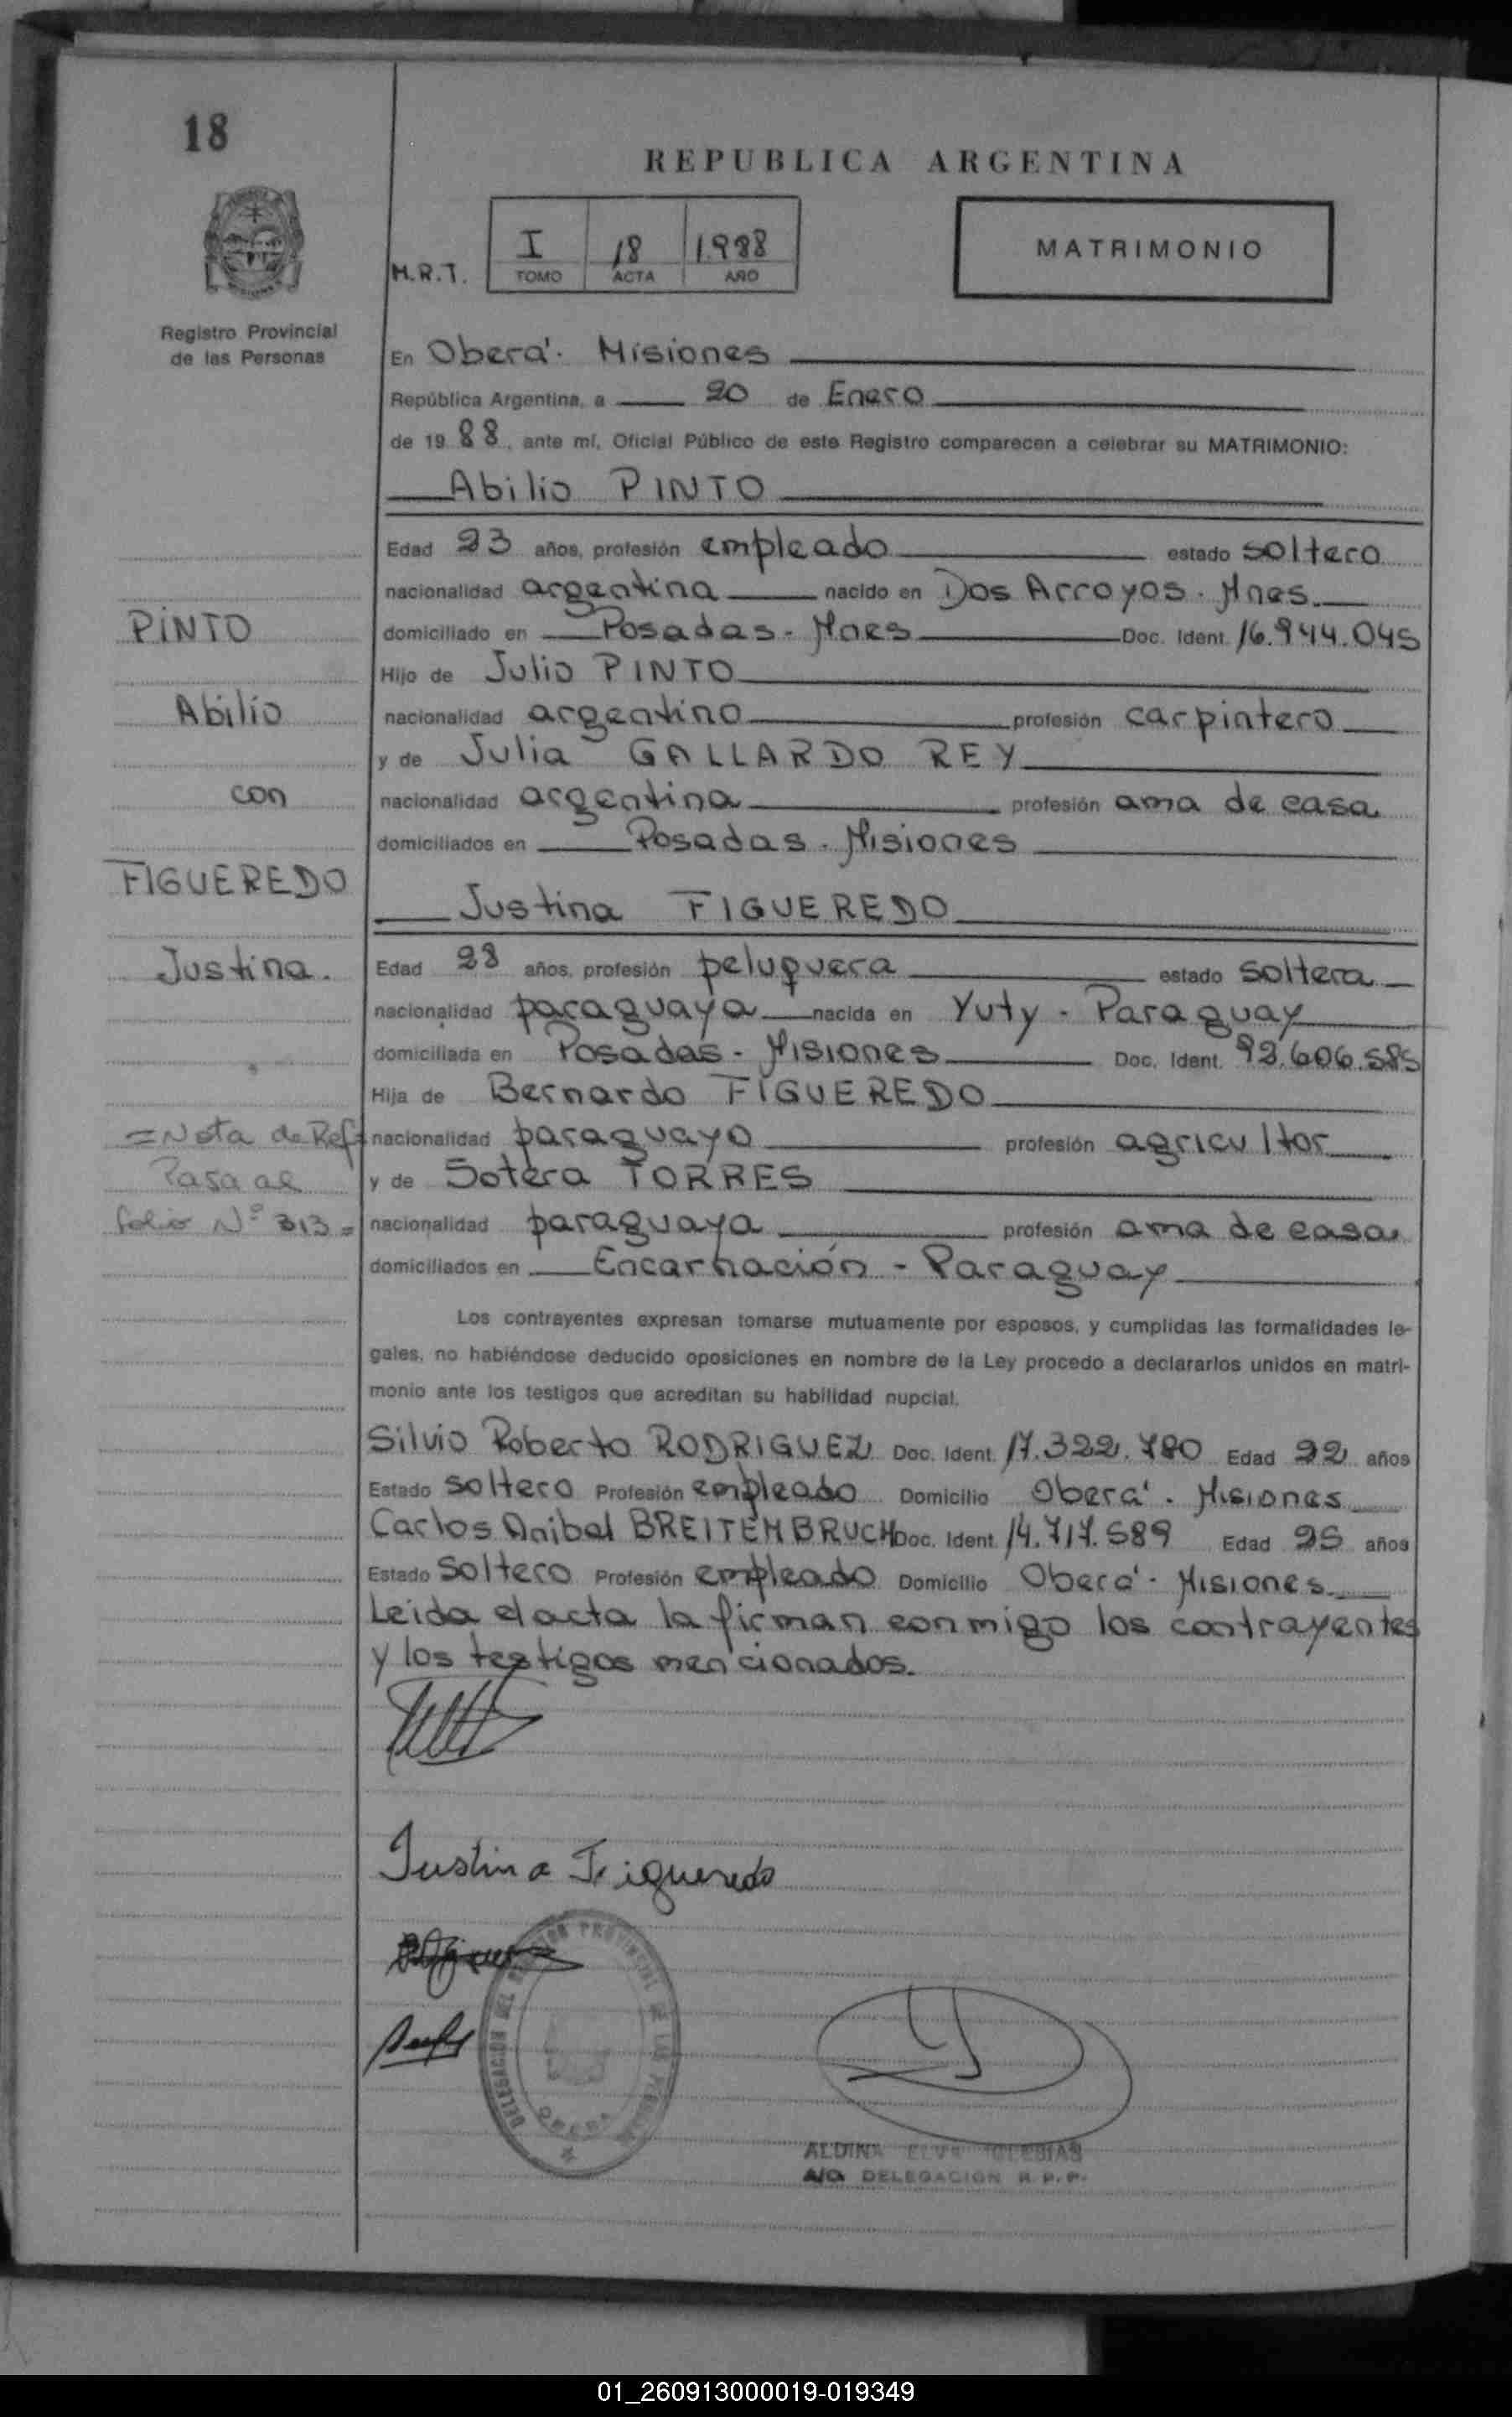 18
REPUBLICA ARGENTINA
H.R.T.
I 18 1.988
TOMO ACTA AÑO
MATRIMONIO
Registro Provincial
de las Personas
En Oberá. Misiones
República Argentina, a 20 de Enero
de 1988, ante mí, Oficial Público de este Registro comparecen a celebrar su MATRIMONIO:
Abilio PINTO
Edad 23 años, profesión empleado estado soltero
nacionalidad argentina nacido en Dos Arroyos. Mnes.
domiciliado en Posadas - Mnes Doc. Ident. 16.944.045
Hijo de Julio PINTO
nacionalidad argentino profesión carpintero
y de Julia GALLARDO REY
nacionalidad argentina profesión ama de casa
domiciliados en Posadas. Misiones
Justina FIGUEREDO
Edad 28 años, profesión peluquera estado soltera
nacionalidad paraguaya nacida en Yuty - Paraguay
domiciliada en Posadas - Misiones Doc. Ident. 92.606.585
Hija de Bernardo FIGUEREDO
nacionalidad paraguayo profesión agricultor
y de Sotera TORRES
nacionalidad paraguaya profesión ama de casa
domiciliados en Encarnación - Paraguay
PINTO
Abilio
con
FIGUEREDO
Justina.
=Nota de Ref=
Pasa al
folio Nº 313=
Los contrayentes expresan tomarse mutuamente por esposos, y cumplidas las formalidades le-
gales, no habiéndose deducido oposiciones en nombre de la Ley procedo a declararlos unidos en matri-
monio ante los testigos que acreditan su habilidad nupcial.
Silvio Roberto RODRIGUEZ Doc. Ident. 17.322.780 Edad 22 años
Estado soltero Profesión empleado Domicilio Oberá. Misiones
Carlos Anibal BREITEMBRUCH Doc. Ident. 14.717.589 Edad 25 años
Estado soltero Profesión empleado Domicilio Oberá - Misiones
Leida el acta la firman conmigo los contrayentes
y los testigos mencionados.
Justina Figueredo
DELEGACION PROVINCIAL DE LAS
OBERA
ALDINA ELVA IGLESIAS
A/C DELEGACION R.P.P.
01_260913000019-019349